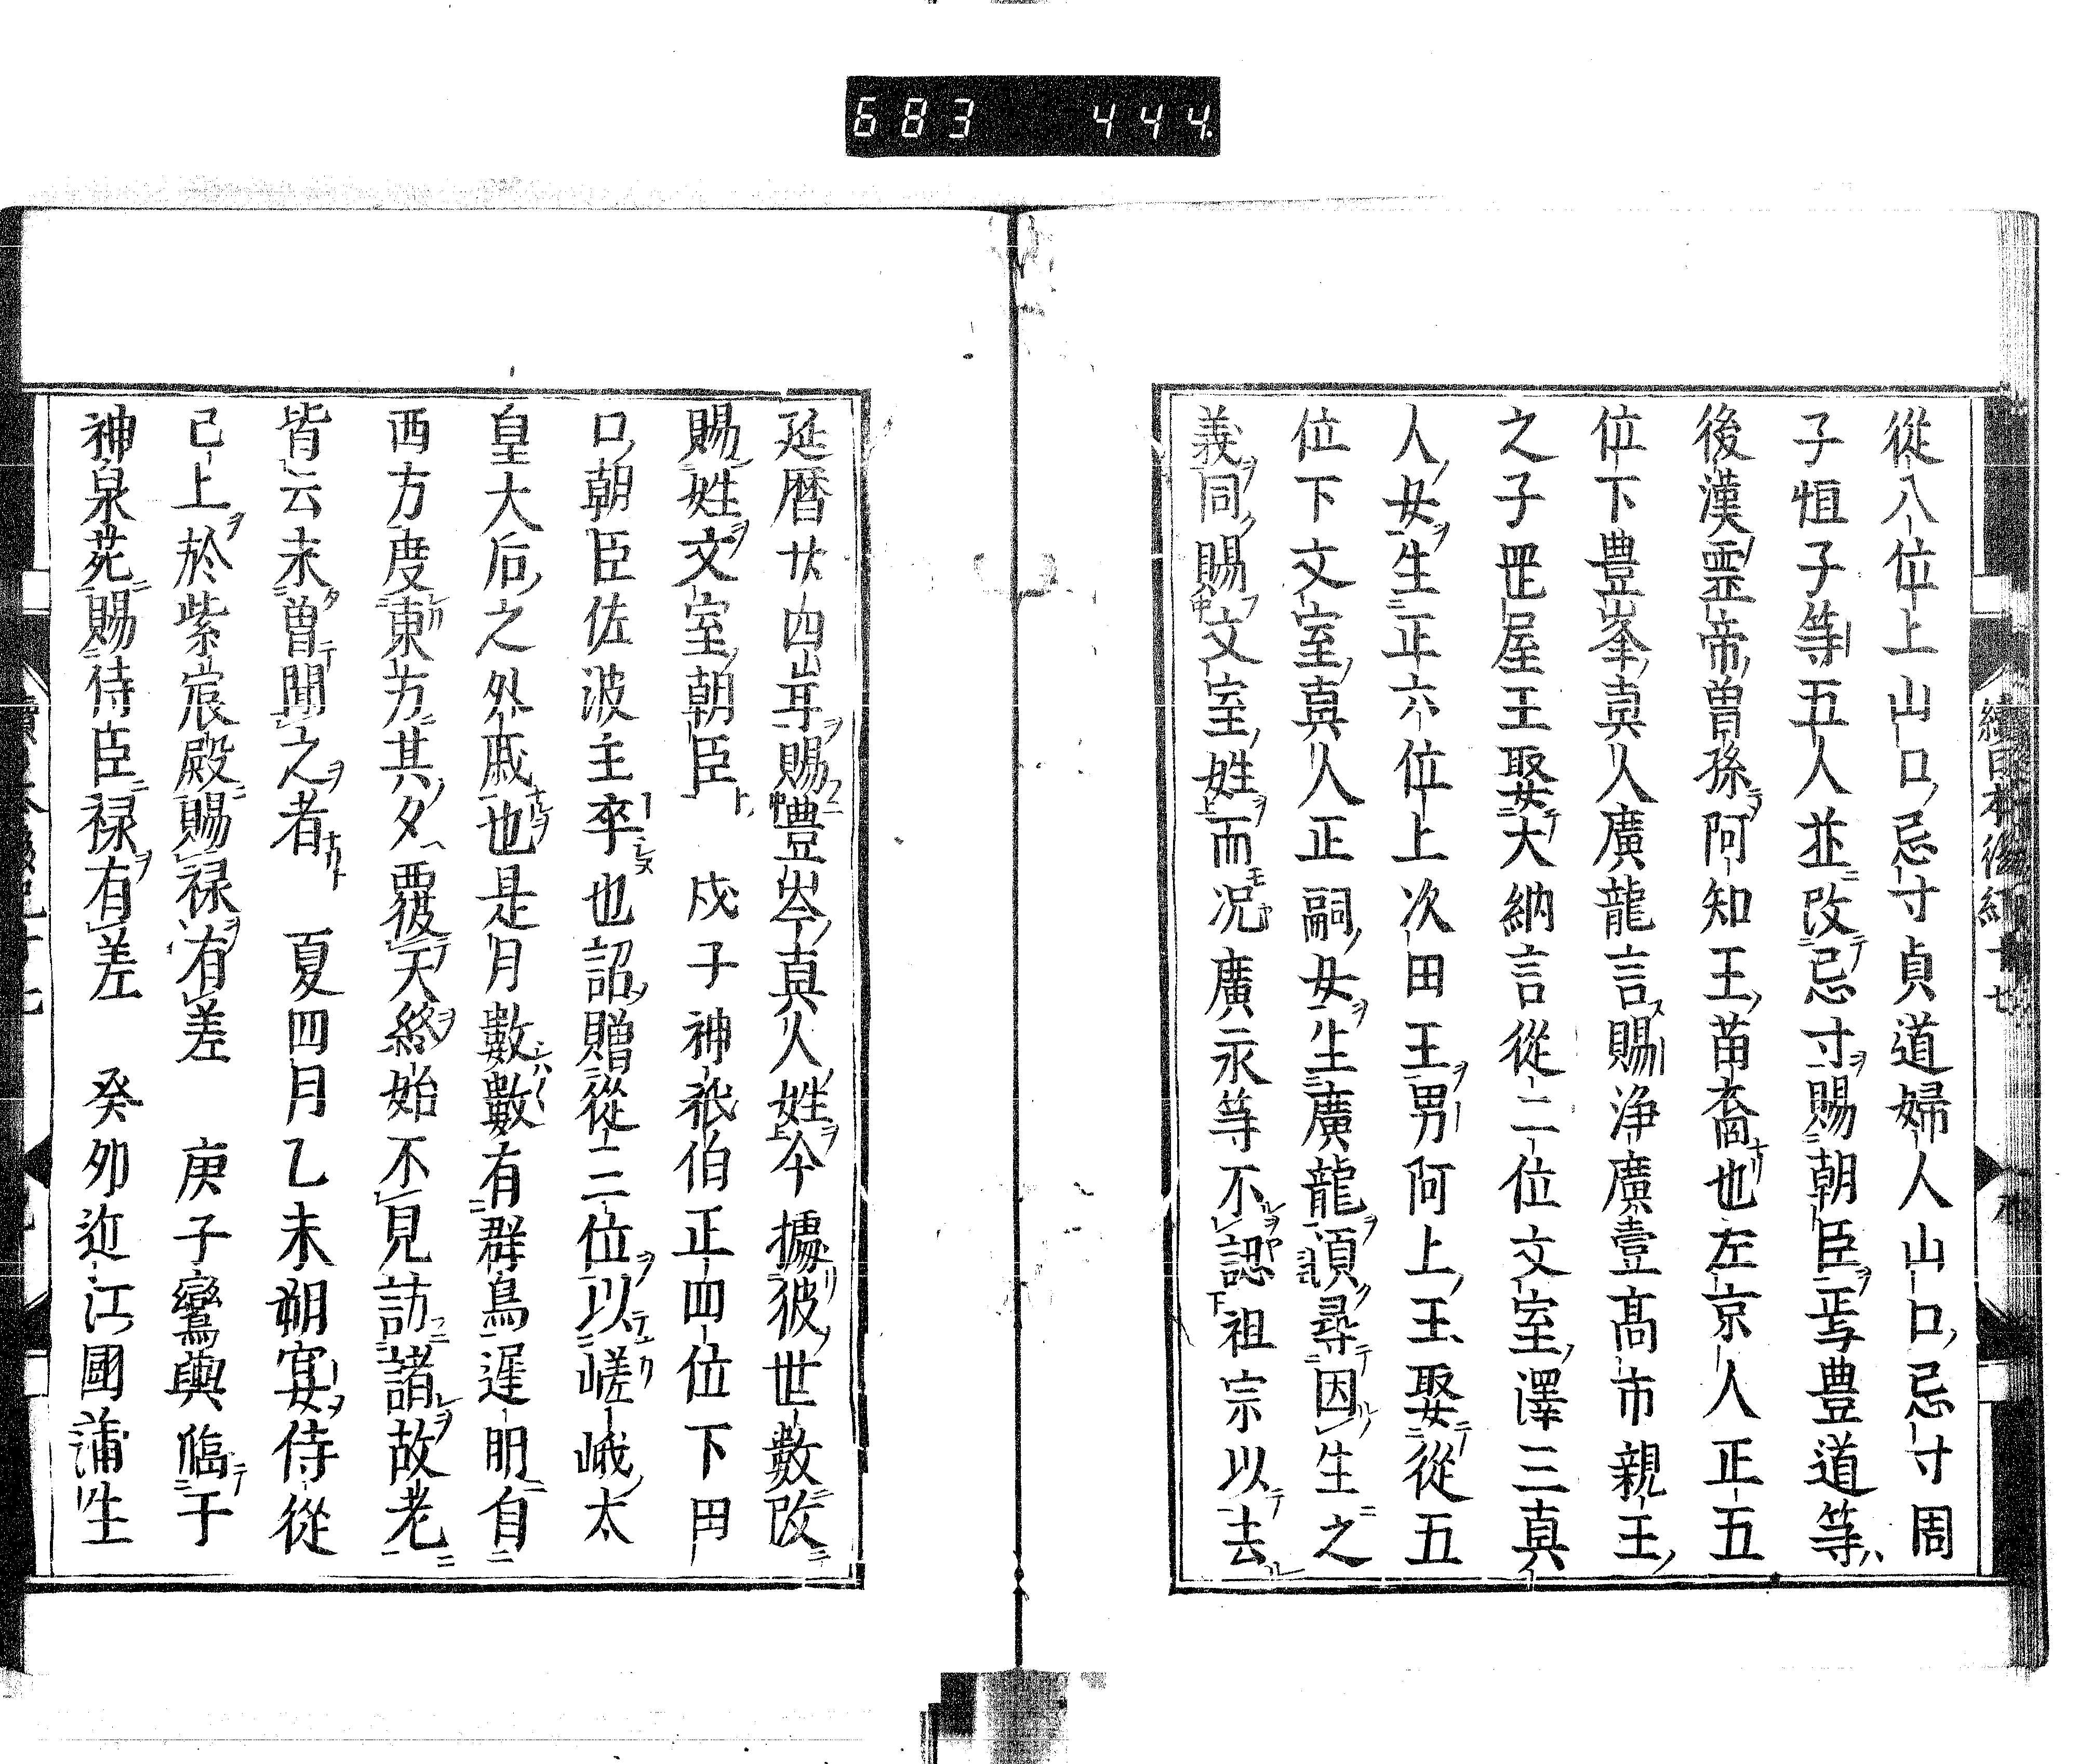 683 444.
續日本後紀十七
從八位上山口忌寸貞道婦人山口忌寸周
子恒子等五人並改忌寸賜朝臣焉豊道等
後漢霊帝曽孫阿知王苗裔也左京人正五
位下豊峯真人廣龍言賜浄廣壹髙市親王
之子罡屋王娶大納言從二位文室澤三真
人女生正六位上次田王男阿上王娶從五
位下文室真人正嗣女生廣龍須尋因生之
義同賜文室姓而况廣永等不認祖宗以去
延暦廿四年賜豊岑真人姓今據彼世數改
賜姓文室朝臣 戍子神祇伯正四位下田
口朝臣佐波主卒也詔贈從三位以嵯峨太
皇大后之外戚也是月數數有群鳥遅明自
西方度東方其夕覆彼天終始不見訪諸故老
皆云未曽聞之者 夏四月乙未朔宴侍從
已上於紫宸殿賜禄有差 庚子鸞輿臨于
神泉苑賜侍臣禄有差 癸卯近江國蒲生